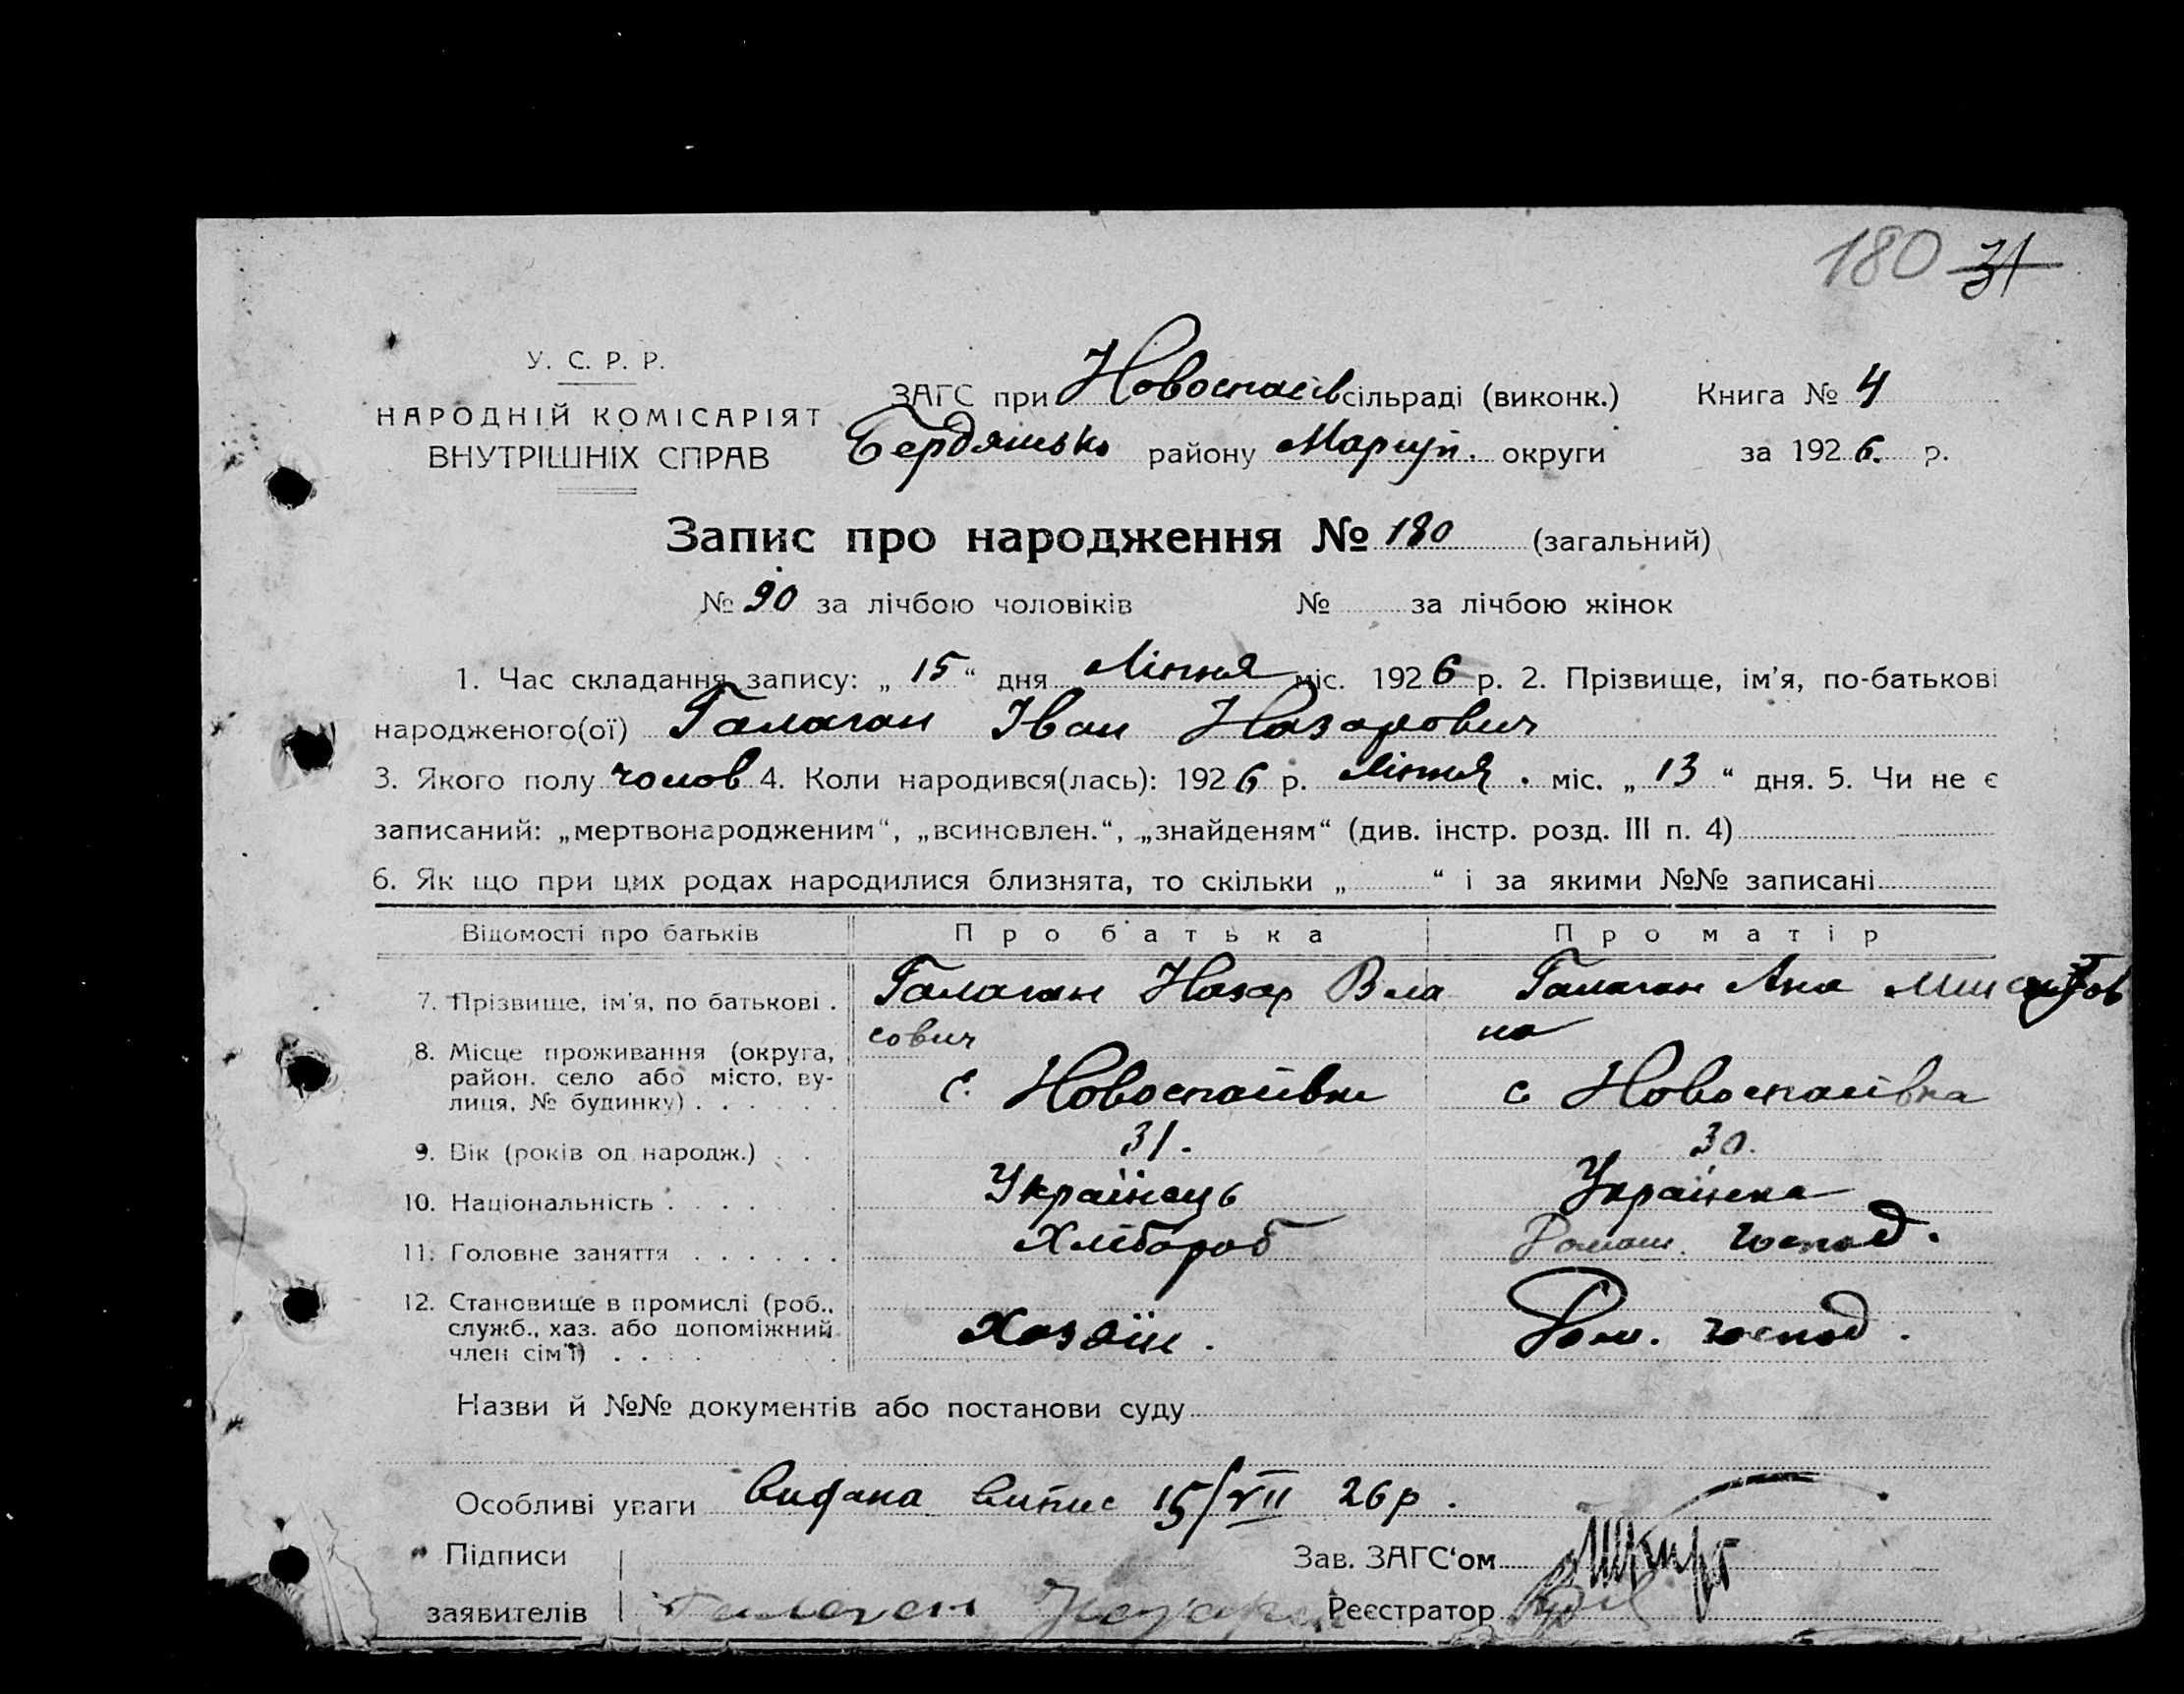 180 31
У. С. Р. Р.
НАРОДНІЙ КОМІСАРІЯТ
ВНУТРІШНІХ СПРАВ
ЗАГС при Новоспасів сільраді (виконк.) Книга № 4
Бердянсько району Маріуп. округи за 1926. р.
Запис про народження № 180 (загальний)
№ 90 за лічбою чоловіків № за лічбою жінок
1. Час складання запису: „ 15 “ дня Липня міс. 1926 р. 2. Прізвище, ім'я, по-батькові
народженого(ої) Галаган Іван Назарович
3. Якого полу чолов 4. Коли народився(лась): 1926 р. Липня . міс. „ 13 “ дня. 5. Чи не є
записаний: „мертвонародженим“, „всиновлен.“, „знайденям“ (див. інстр. розд. III п. 4)
6. Як що при цих родах народилися близнята, то скільки „ “ і за якими №№ записані
Відомості про батьків Про батька Про матір
7. Прізвище, ім'я, по батькові . Галаган Назар Вла Галаган Ана
сович на
8. Місце проживання (округа,
район, село або місто, ву-
лиця, № будинку) . . . . . . с. Новоспаівка с Новоспаівка
9. Вік (років од народж.) . . 31. 30.
10. Національність . . . . . . Українець Українка
11. Головне заняття . . . . . . Хлібороб Домаш. господ.
12. Становище в промислі (роб.,
служб., хаз. або допоміжний
член сім'ї) . . . . Хазяїн . Дом. господ .
Назви й №№ документів або постанови суду
Особливі уваги видана випис 15/VII 26 р .
Підписи Зав. ЗАГС'ом
заявителів Галаган Назар Реєстратор